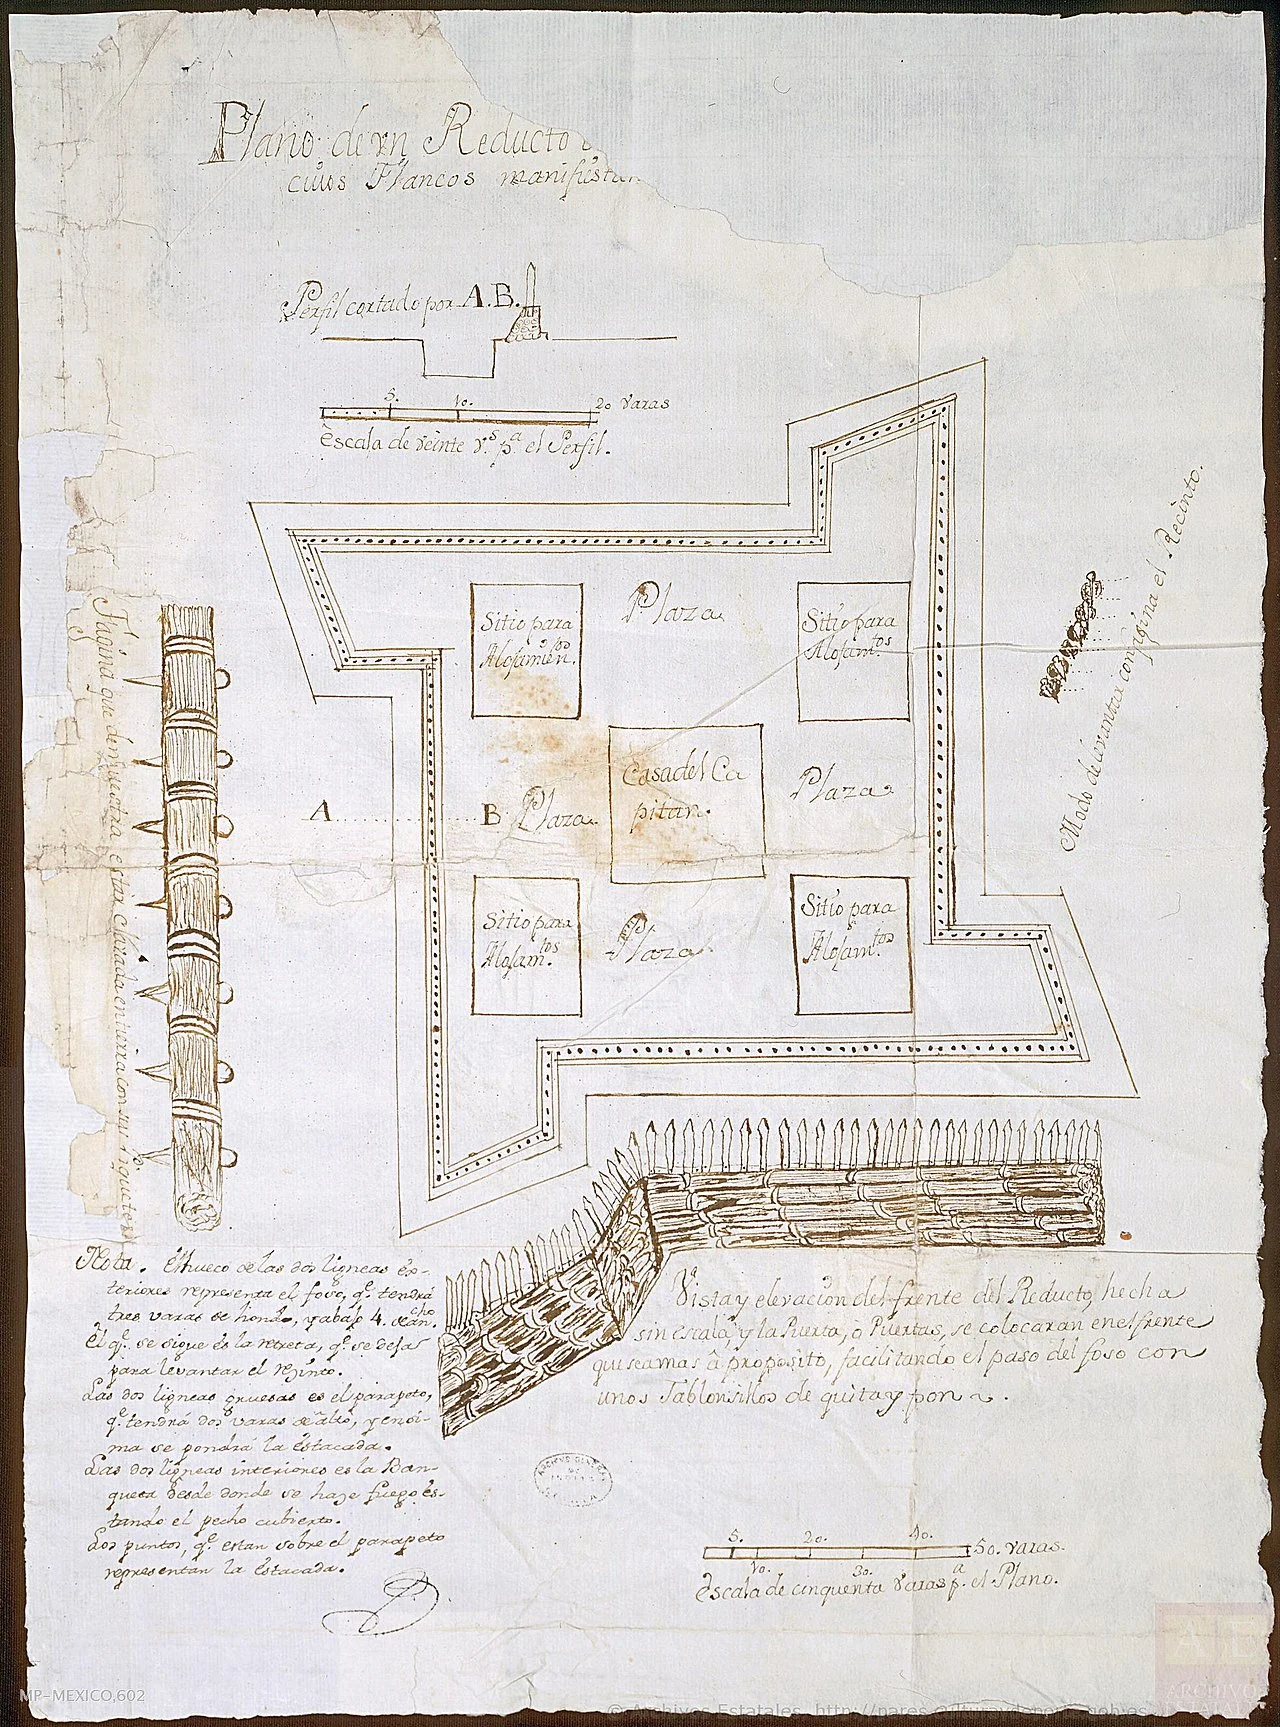 Plano de vn Reducto
cuios Flancos manifiestan
Perfil cortado por A.B.
5. 10. 20 varas
Escala de veinte v.s p.a el Perfil.
Sitio para
Alojamien.tos
Plaza
Sitio para
Alojam.tos
Casa del Ca
pitan.
Plaza
A B Plaza.
Sitio para
Alojam.tos
Plaza
Sitio para
Alojam.tos
Modo de levantar con fagina el Recinto.
Fagina que demuestra estar clavada en tierra con sus Piquetes
Nota. El hueco de las dos ligneas ex-
teriores representa el foso, q.e tendrá
tres varas de hondo, y abajo 4. de an.cho
El q.e se sigue es la retreta, q.e se dejas
para levantar el rezinto.
Las dos ligneas gruesas es el parapeto,
q.e tendrá dos varas de alto, y enci-
ma se pondrá la estacada.
Las dos ligneas interiores es la Ban-
queta desde donde se haze fuego es-
tando el pecho cubierto.
Los puntos, q.e estan sobre el parapeto
representan la estacada.
Vista y elevacion del frente del Reducto, hecha
sin escala, y la Puerta, o Puertas, se colocaran en el frente
qu sea mas â proposito, facilitando el paso del foso con
unos Tablonsillos de quita y pon.
ARCHIVO GENERAL
DE
INDIAS
5. 20. 40. 50. varas.
10. 30.
Escala de cinquenta varas p.a el Plano.
MP-MEXICO,602
© Archivos Estatales, http://pares.culturaydeporte.gob.es
A E
ARCHIVOS
ESTATALES